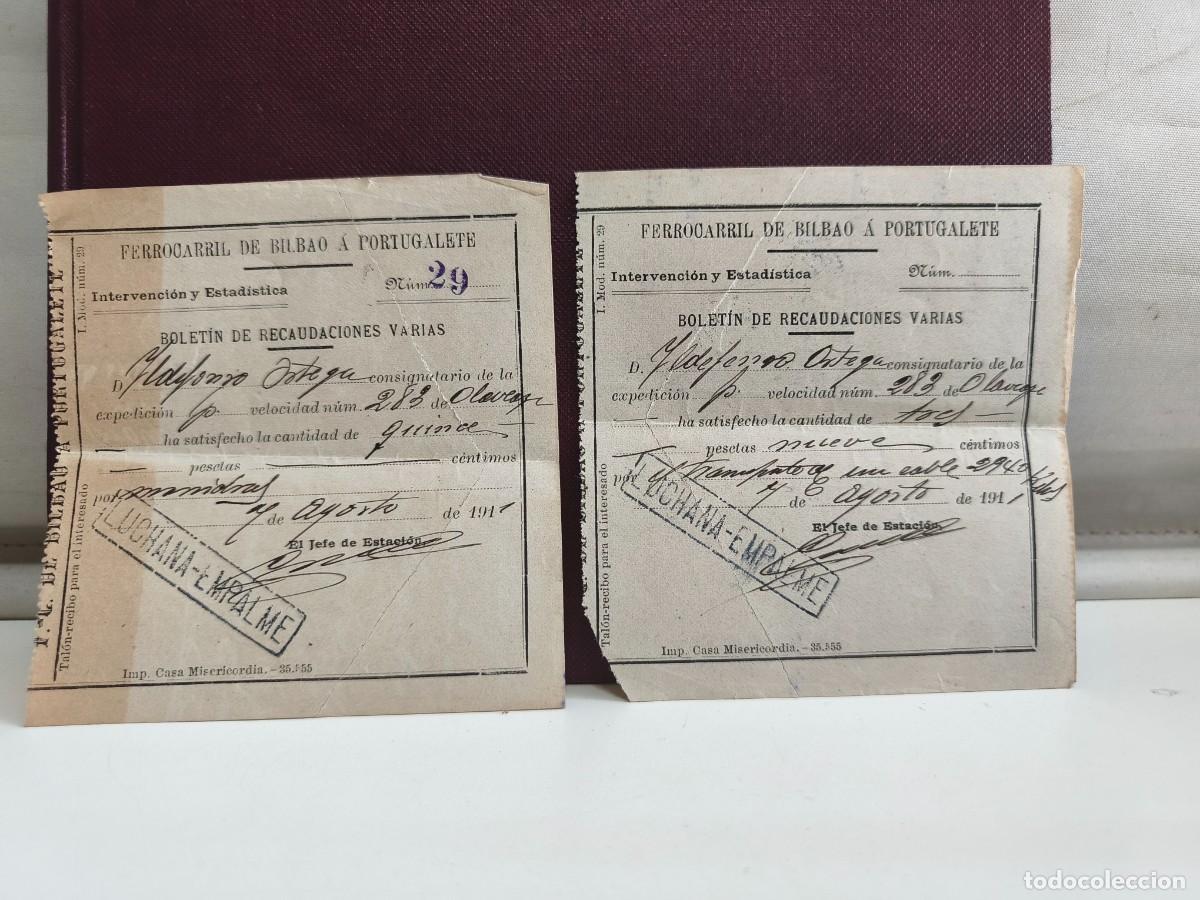 F. C. DE BILBAO A PORTUGALETE
Talón-recibo para el interesado
I. Mod. núm. 29
FERROCARRIL DE BILBAO Á PORTUGALETE
Intervención y Estadística
Núm. 29
BOLETÍN DE RECAUDACIONES VARIAS
D. Yldefonso Ortega consignatario de la
expedición p. velocidad núm. 283 de Olaveaga
ha satisfecho la cantidad de quince
pesetas céntimos
por
7 de Agosto de 1911
El Jefe de Estación,
LUCHANA-EMPALME
Imp. Casa Misericordia.-35.555
Talón-recibo para el interesado
I. Mod. núm. 29
FERROCARRIL DE BILBAO Á PORTUGALETE
Intervención y Estadística
Núm.
BOLETÍN DE RECAUDACIONES VARIAS
D. Yldefonso Ortega consignatario de la
expedición p. velocidad núm. 283 de Olaveaga
ha satisfecho la cantidad de tres
pesetas nueve céntimos
por un cable 2940 kilos
7 de Agosto de 1911
El Jefe de Estación,
LUCHANA-EMPALME
Imp. Casa Misericordia.-35.555
todocoleccion